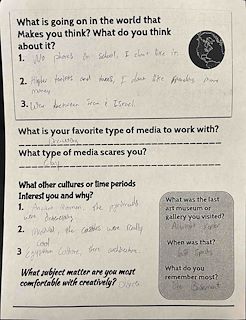 What is going on in the world that
Makes you think? What do you think
about it?
1. No phones in school, I dont like it.
2. Higher tarrifs and taxes, I dont like spending more
money
3. War between Iran & Israel
What is your favorite type of media to work with?
What type of media scares you?
Clay
What other cultures or time periods
Interest you and why?
1. Ancient Roman, the
were interesting.
2. Medieval, the castles were really
cool
3. Egyptian Culture, their architecture.
What subject matter are you most
comfortable with creatively?
What was the last
art museum or
gallery you visited?
When was that?
What do you
remember most?